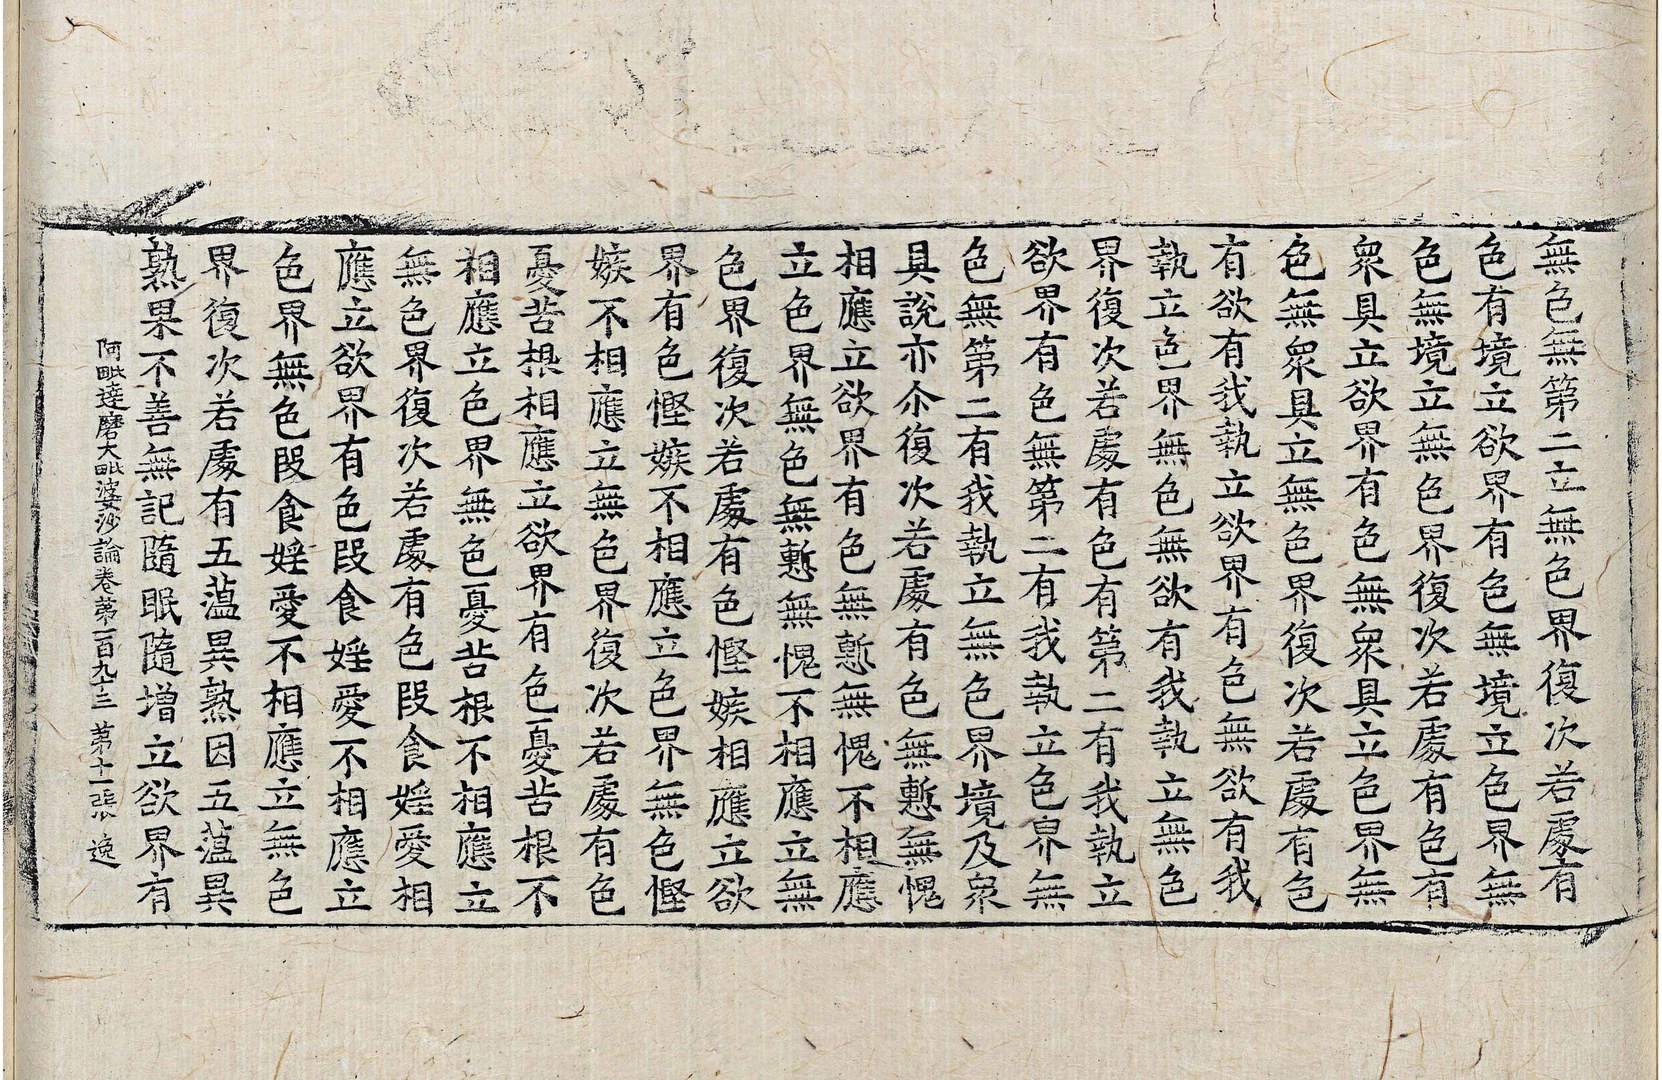 無色無第二立無色界復次若處有
色有境立欲界有色無境立色界無
色無境立無色界復次若處有色有
衆具立欲界有色無衆具立色界無
色無衆具立無色界復次若處有色
有欲有我執立欲界有色無欲有我
執立色界無色無欲有我執立無色
界復次若處有色有第二有我執立
欲界有色無第二有我執立色界無
色無第二有我執立無色界境及衆
具說亦尒復次若處有色無慙無愧
相應立欲界有色無慙無愧不相應
立色界無色無慙無愧不相應立無
色界復次若處有色慳嫉相應立欲
界有色慳嫉不相應立色界無色慳
嫉不相應立無色界復次若處有色
憂苦根相應立欲界有色憂苦根不
相應立色界無色憂苦根不相應立
無色界復次若處有色段食婬愛相
應立欲界有色段食婬愛不相應立
色界無色段食婬愛不相應立無色
界復次若處有五蘊異熟因五蘊異
熟果不善無記隨眠隨增立欲界有
阿毗達磨大毗婆沙論卷第一百九十三 第十一張 逸